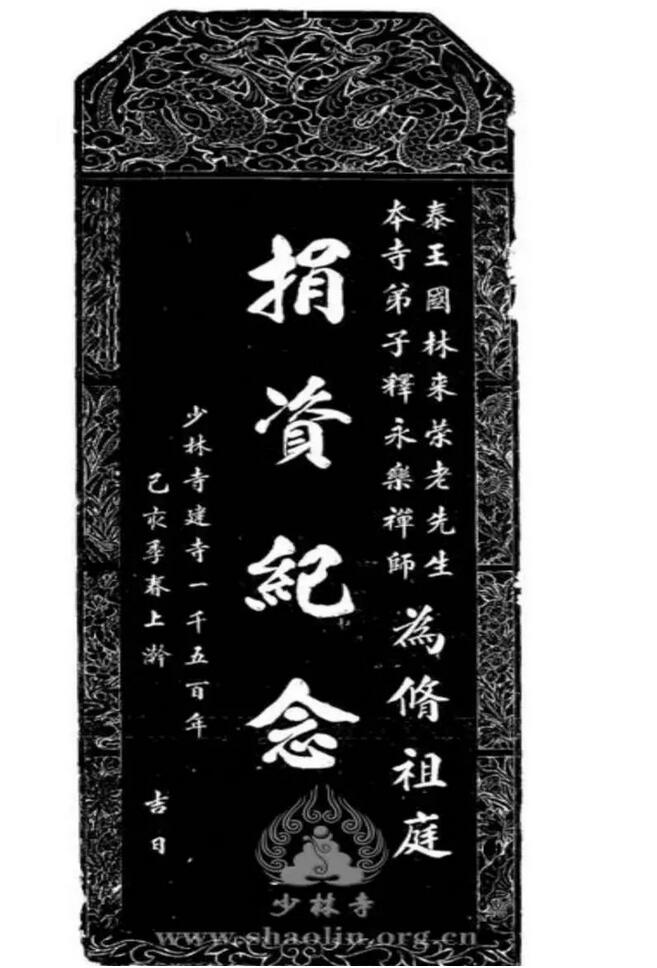 泰王國林来荣老先生
夲寺弟子釋永樂禪師
為脩祖庭
捐資紀念
少林寺建寺一千五百年
己亥季春上澣 吉日
少林寺
www.shaolin.org.cn